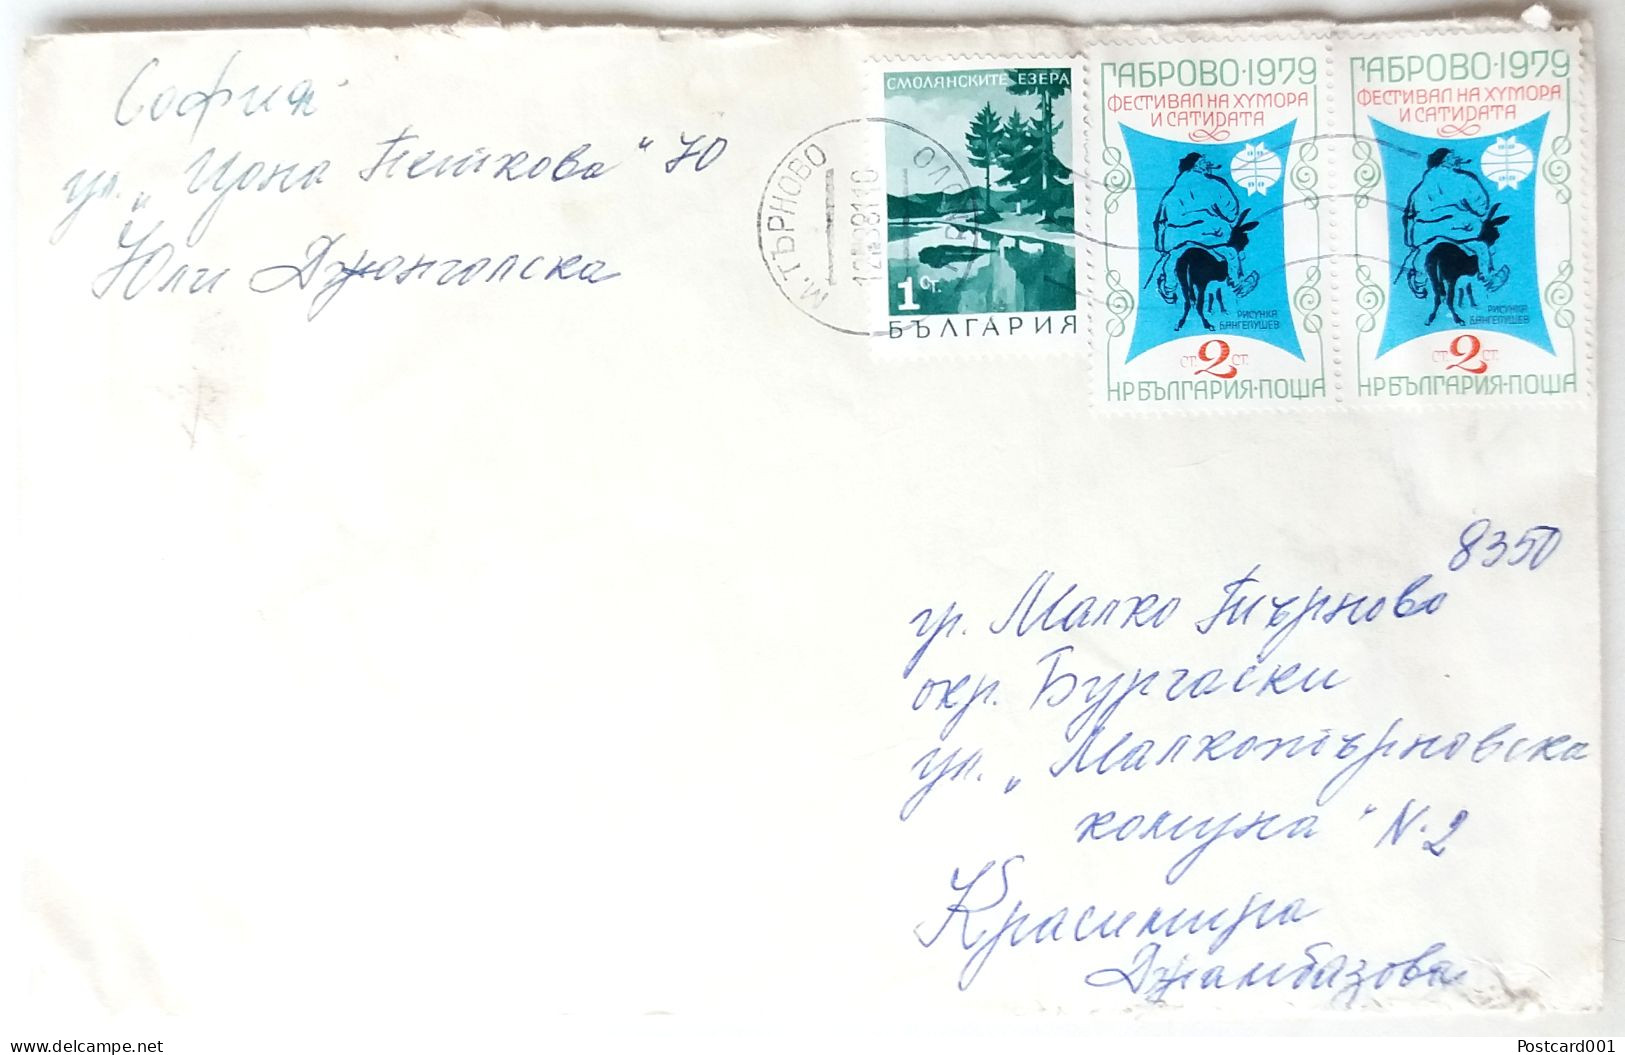 София
ул. „Цона Петкова" 70
Юли Джонголска
СМОЛЯНСКИТЕ ЕЗЕРА
1 СТ.
БЪЛГАРИЯ
М. ТЪРНОВО
ГАБРОВО·1979
ФЕСТИВАЛ НА ХУМОРА
И САТИРАТА
РИСУНКА
Б.АНГЕЛУШЕВ
СТ. 2 СТ.
НР БЪЛГАРИЯ·ПОЩА
ГАБРОВО·1979
ФЕСТИВАЛ НА ХУМОРА
И САТИРАТА
РИСУНКА
Б.АНГЕЛУШЕВ
СТ. 2 СТ.
НР БЪЛГАРИЯ·ПОЩА
8350
гр. Малко Търново
окр. Бургаски
ул. „Малкотърновска
комуна" N.2
Красимира
Джамбазова
delcampe.net
Postcard001